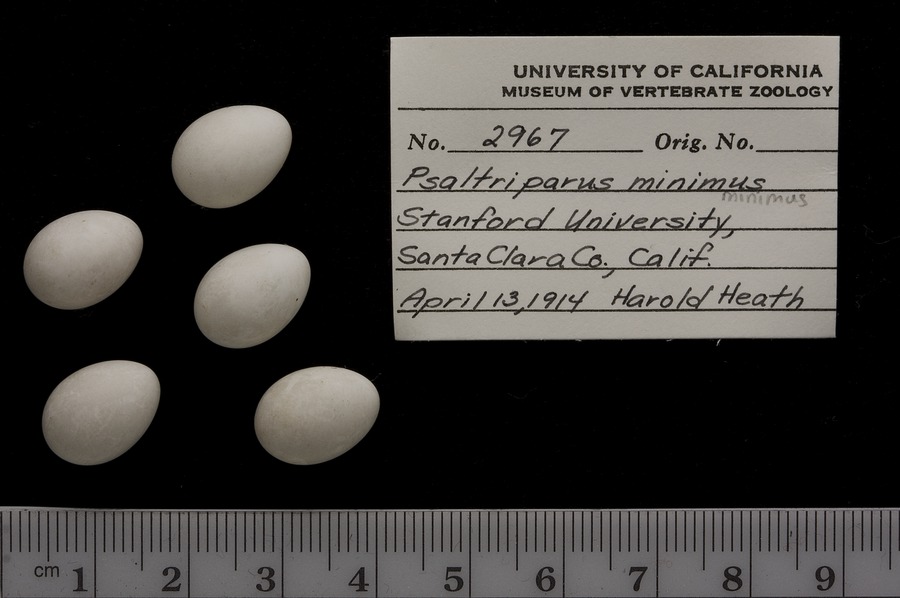 UNIVERSITY OF CALIFORNIA
MUSEUM OF VERTEBRATE ZOOLOGY
No. 2967 Orig. No.
Psaltriparus minimus
minimus
Stanford University,
Santa Clara Co., Calif.
April 13, 1914 Harold Heath
cm 1 2 3 4 5 6 7 8 9